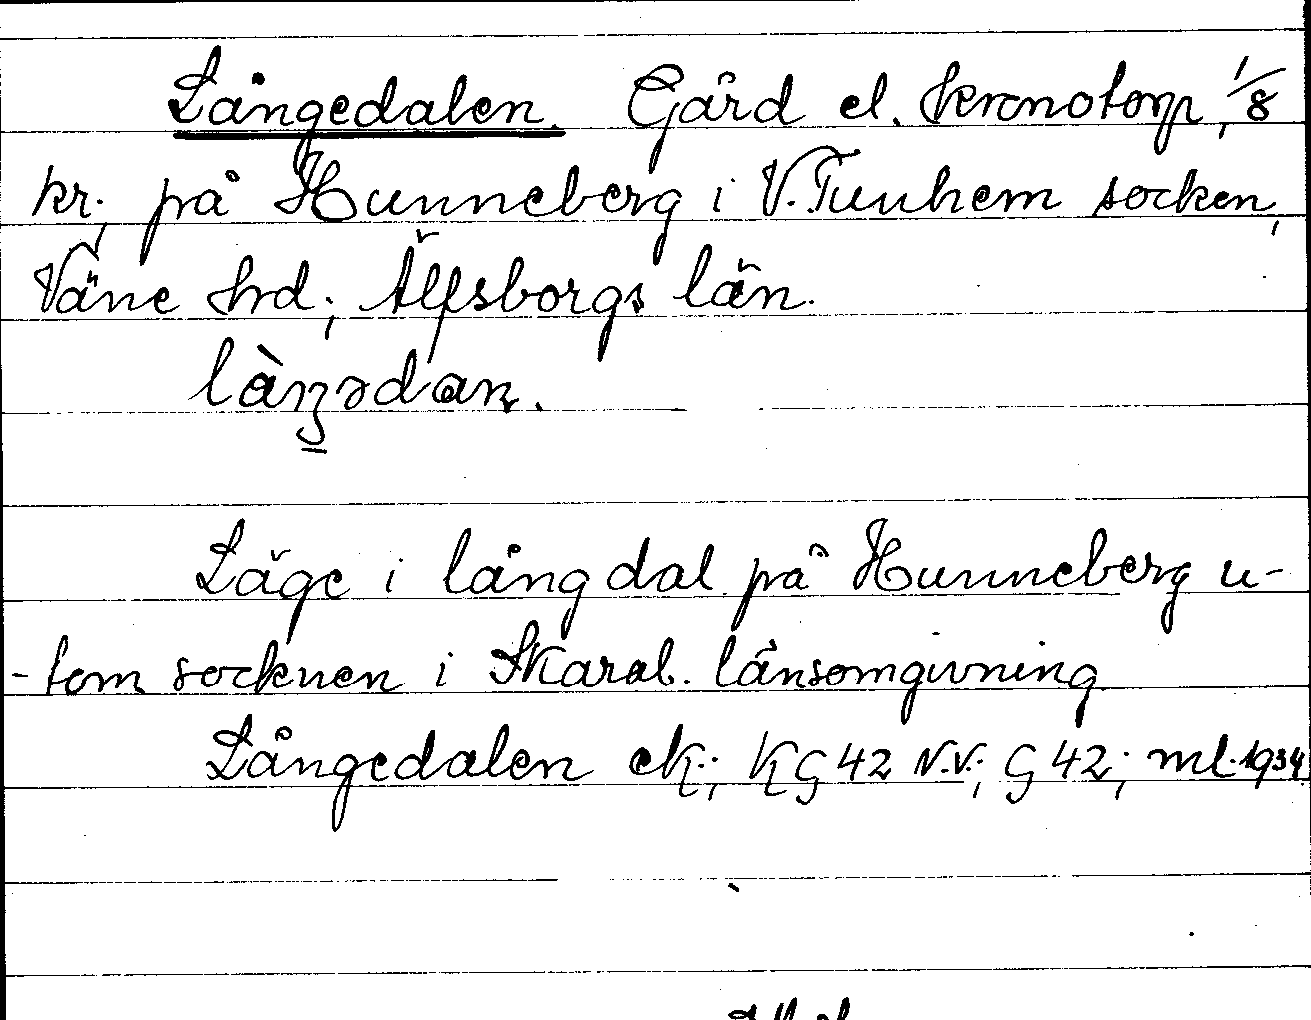 Långedalen. Gård el. kronotorp, 1/8
kr. på Hunneberg i V. Tunhem socken,
Väne hrd; Älfsborgs län.
làŋ̱ədan.
Läge i lång dal på Hunneberg u-
-tom socknen i Skarab. länsomgivning
Långedalen ek; KG 42 N.V.; G 42; ml. 1934